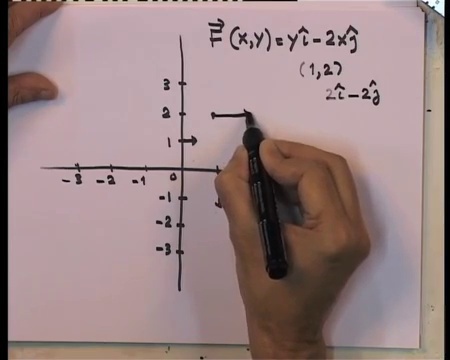 F⃗ (x,y) = yî − 2xĵ
(1,2)
2î − 2ĵ
3
2
1
-3 -2 -1 0
-1
-2
-3